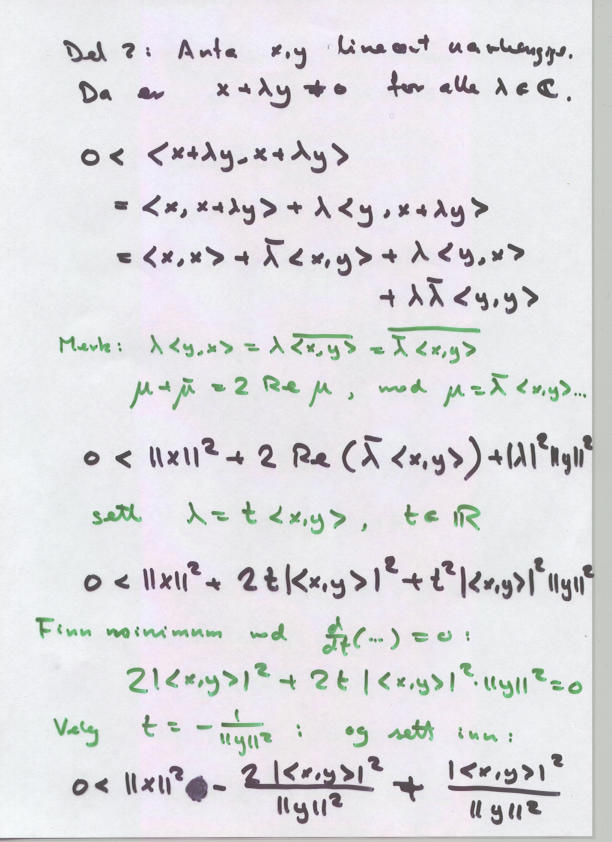 Del 2: Anta x,y lineært uavhengige.
Da er x+λy ≠ 0 for alle λ ∈ ℂ.
0 < <x+λy, x+λy>
= <x, x+λy> + λ<y, x+λy>
= <x,x> + λ̄<x,y> + λ<y,x>
+ λλ̄<y,y>
Merk: λ<y,x> = λ\overline{<x,y>} = \overline{λ̄<x,y>}
μ+μ̄ = 2 Re μ, med μ = λ̄<x,y>...
0 < ||x||² + 2 Re(λ̄<x,y>) + |λ|²||y||²
sett λ = t<x,y>, t ∈ ℝ
0 < ||x||² + 2t|<x,y>|² + t²|<x,y>|²||y||²
Finn minimum ved d/dt(...) = 0:
2|<x,y>|² + 2t|<x,y>|²·||y||² = 0
Velg t = -1/||y||² : og sett inn:
0 < ||x||² - 2|<x,y>|²/||y||² + |<x,y>|²/||y||²